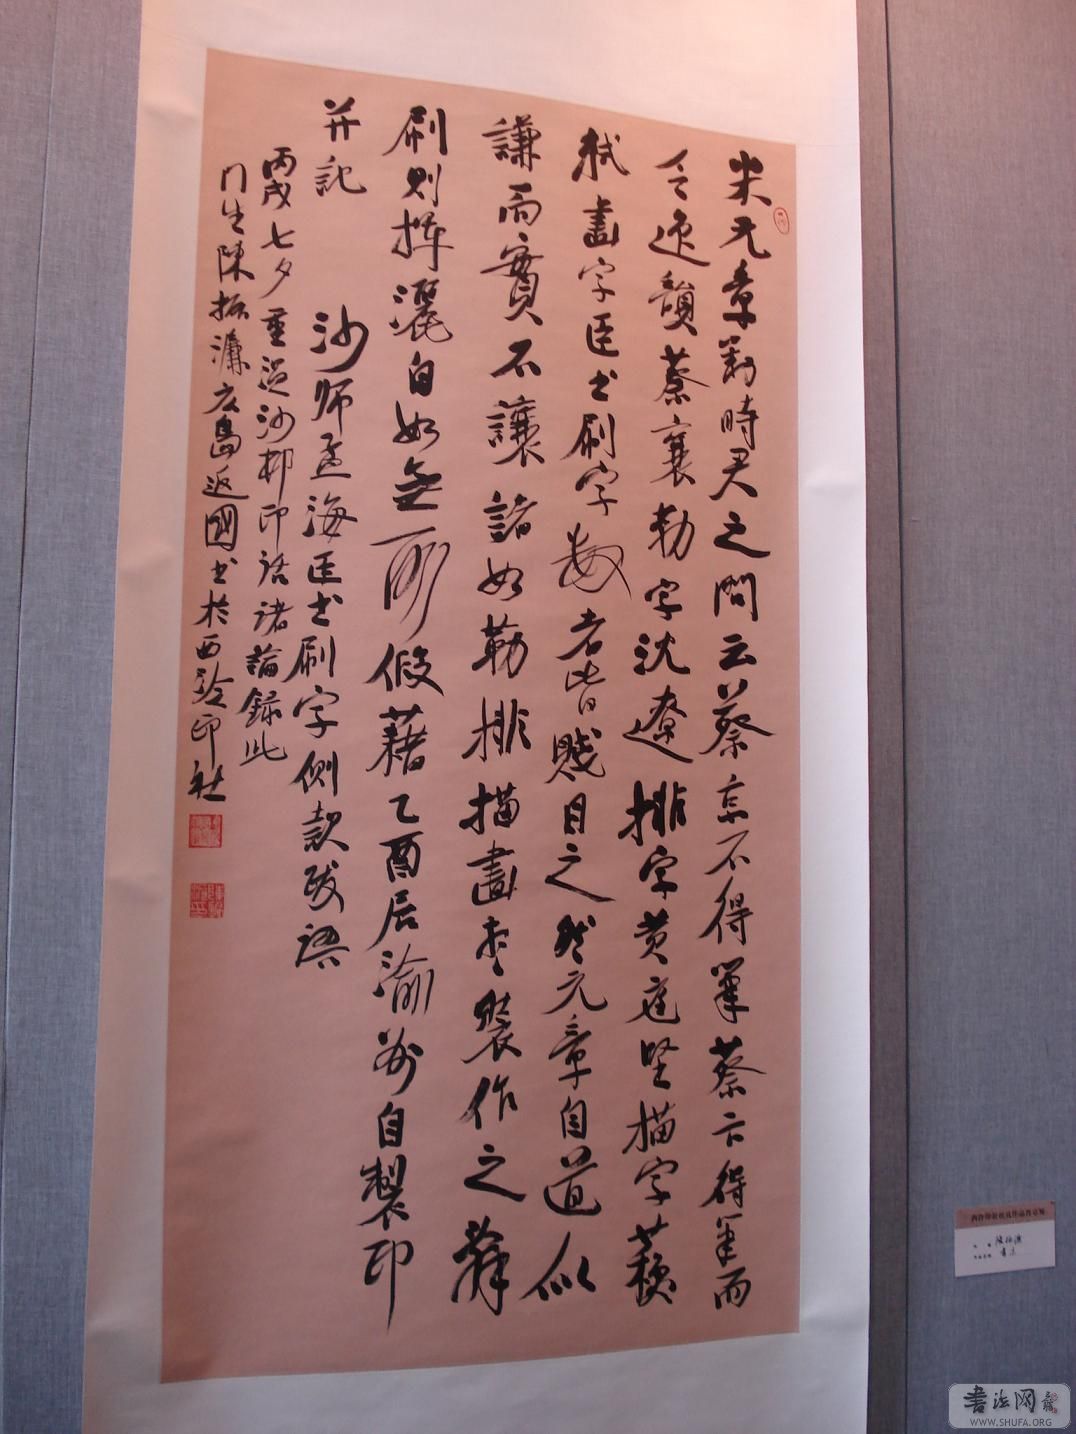 米元章對時君之問云蔡京不得筆蔡卞得筆而
乏逸韻蔡襄勒字沈遼排字黄庭堅描字蘇
軾畫字臣書刷字數者皆賤目之然元章自道似
謙而實不讓諸如勒排描畫走裝作之辭
刷則揮灑自如無所假藉乙酉居渝州自製印
并記
沙師孟海臣書刷字側款跋語
丙戌七夕重過沙邨印話諸論録此
門生陳振濂広島返國書於西泠印社
陳振濂
書法
書法网
WWW.SHUFA.ORG